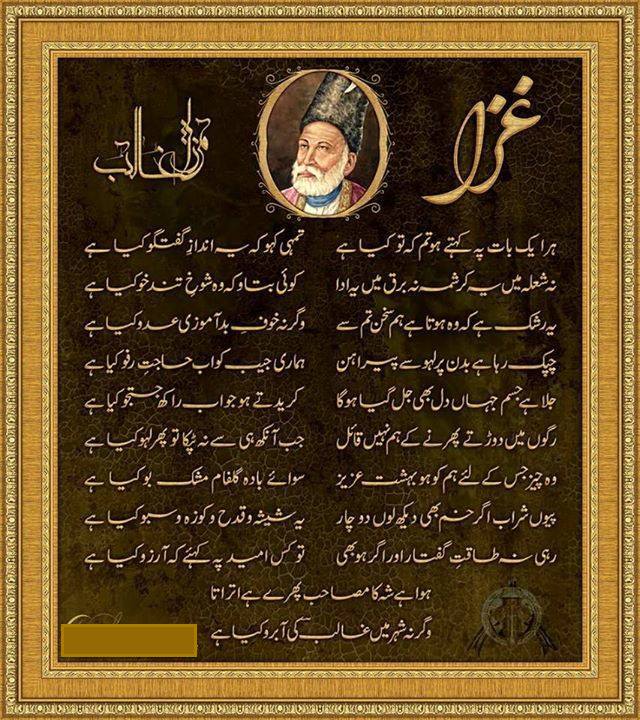 غزل
مرزا غالب
ہر ایک بات پہ کہتے ہو تم کہ تو کیا ہے تمہی کہو کہ یہ اندازِ گفتگو کیا ہے
نہ شعلہ میں یہ کرشمہ نہ برق میں یہ ادا کوئی بتاو کہ وہ شوخِ تند خو کیا ہے
یہ رشک ہے کہ وہ ہوتا ہے ہم سخن تم سے وگرنہ خوفِ بد آموزی عدو کیا ہے
چپک رہا ہے بدن پر لہو سے پیراہن ہماری جیب کو اب حاجتِ رفو کیا ہے
جلا ہے جسم جہاں دل بھی جل گیا ہوگا کریدتے ہو جو اب راکھ جستجو کیا ہے
رگوں میں دوڑتے پھرنے کے ہم نہیں قائل جب آنکھ ہی سے نہ ٹپکا تو پھر لہو کیا ہے
وہ چیز جس کے لئے ہم کو ہو بہشت عزیز سوائے بادہ گلفام مشک بو کیا ہے
پیوں شراب اگر خم بھی دیکھ لوں دو چار یہ شیشہ و قدح و کوزہ و سبو کیا ہے
رہی نہ طاقتِ گفتار اور اگر ہو بھی تو کس امید پہ کہئے کہ آرزو کیا ہے
ہوا ہے شہ کا مصاحب پھرے ہے اتراتا
وگرنہ شہر میں غالب کی آبرو کیا ہے